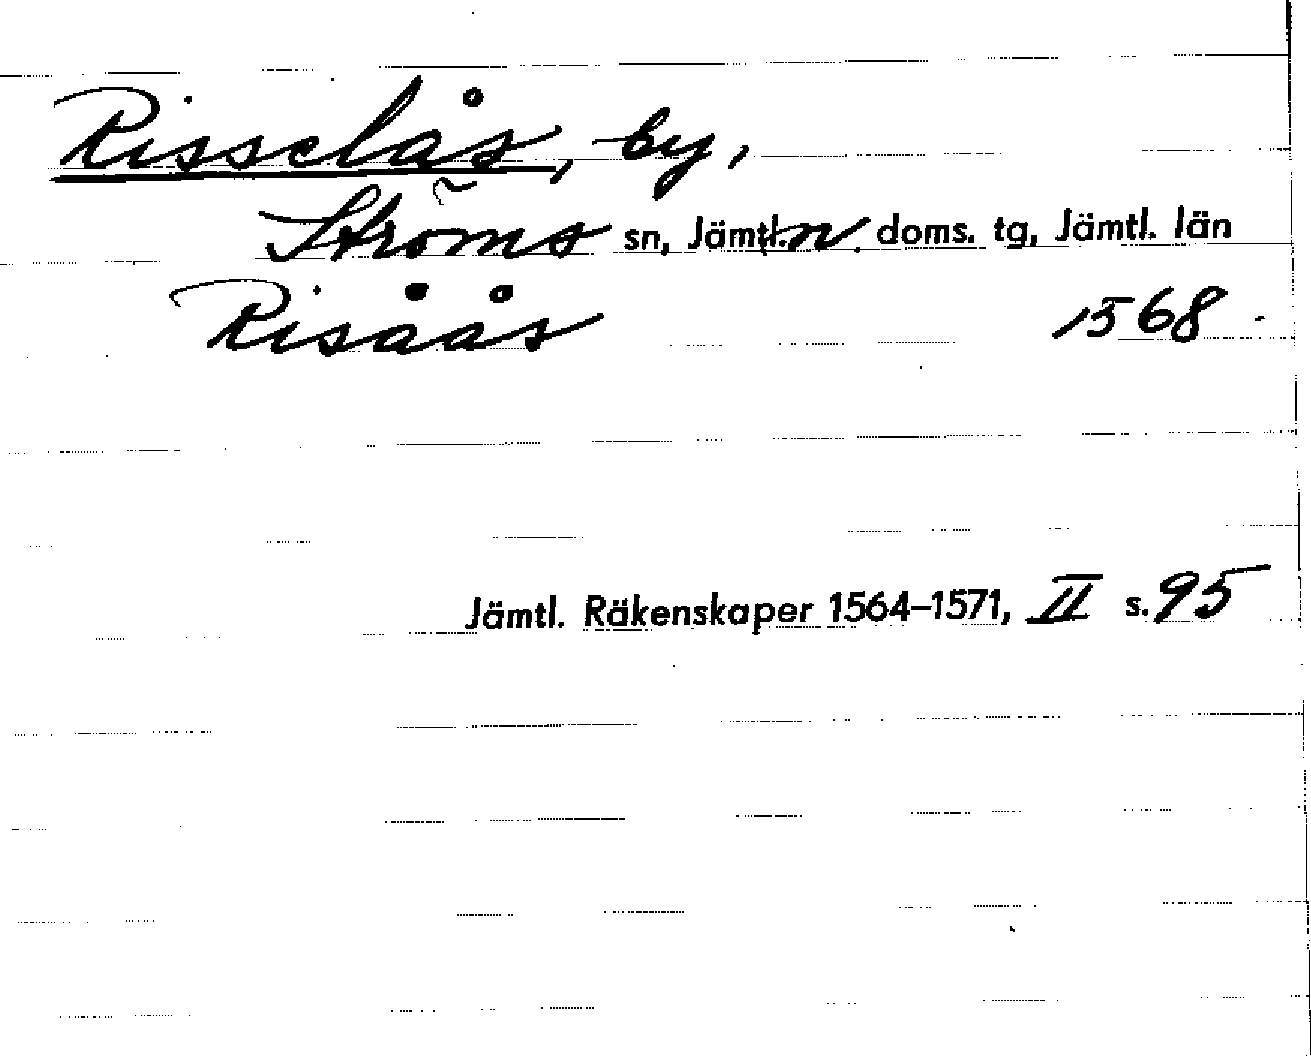 Risselås, by,
Ströms sn, Jämtl. n. doms. tg, Jämtl. län
Risåås 1568.
Jämtl. Räkenskaper 1564–1571, II s. 95